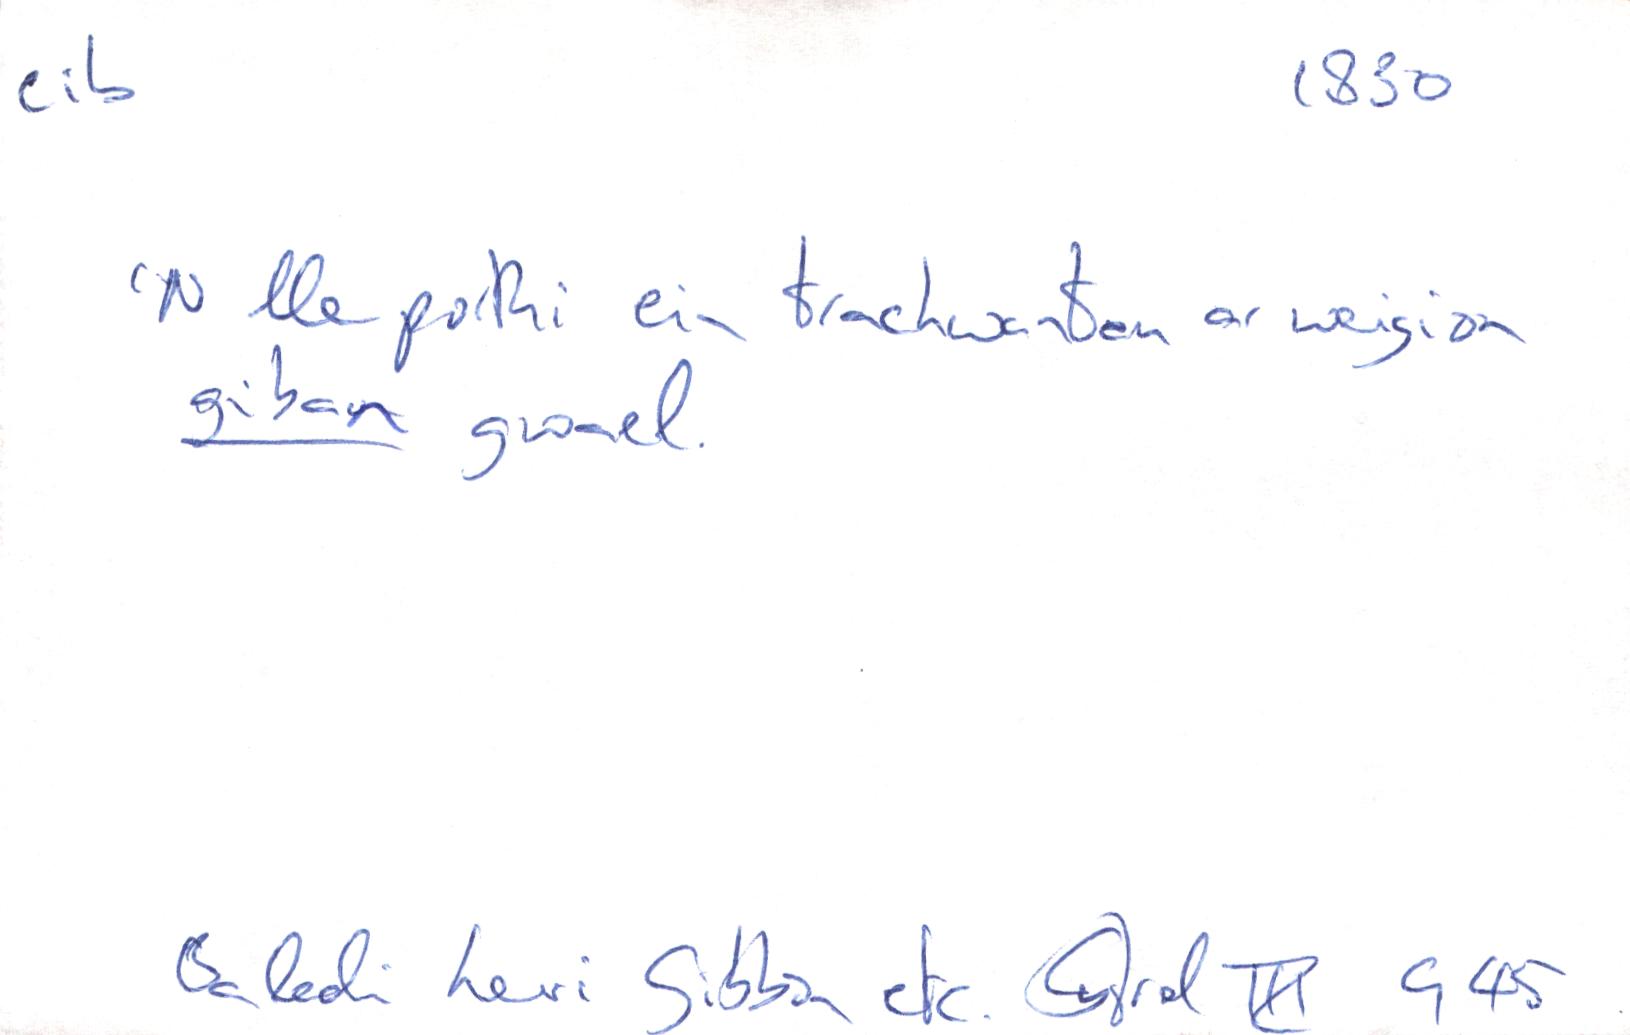 cib 1830
'N lle porthi ein trachwantau ar weigion
giban gwael.
Baledi Levi Gibbon etc. Cyfrol III G 45